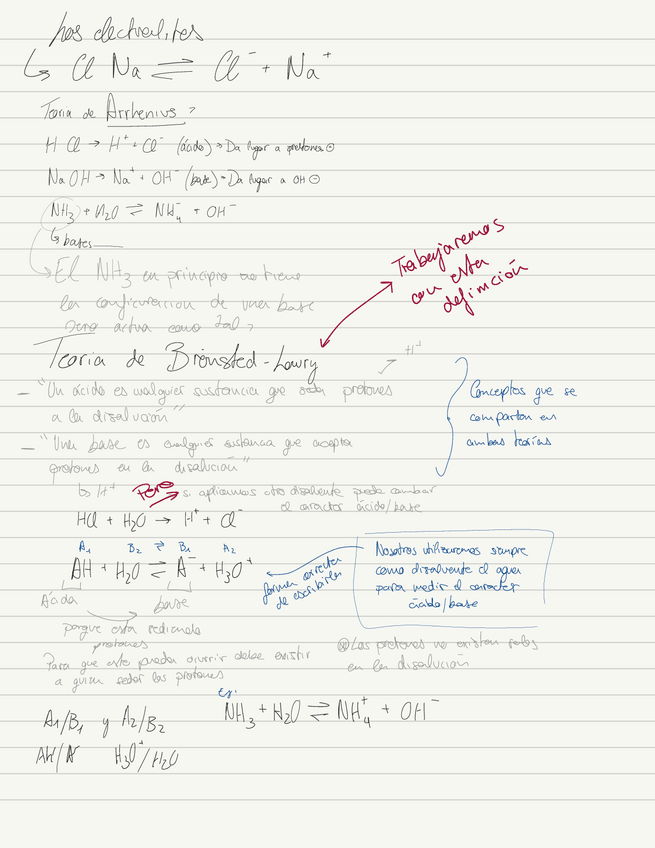 Los electrolitos
↳ Cl Na ⇌ Cl⁻ + Na⁺
Teoria de Arrhenius >
H Cl → H⁺ + Cl⁻ (ácido) → Da lugar a protones ⊙
Na OH → Na⁺ + OH⁻ (base) → Da lugar a OH ⊖
NH₃ + H₂O ⇌ NH₄⁺ + OH⁻
↳ bases
El NH₃ en principio no tiene
la configuracion de una base
pero actua como tal >
Trabajaremos
con esta
definición
Teoria de Brönsted-Lowry
H⁺
— "Un ácido es cualquier sustancia que seda protones
a la disolución"
— "Una base es cualquier sustancia que acepta
protones en la disolución"
Conceptos que se
comparten en
ambas teorías
↳ H⁺ Pero si aplicamos otro disolvente puede cambiar
el caracter ácido/base
HCl + H₂O → H⁺ + Cl⁻
A₁ B₂ ⇌ B₁ A₂
AH + H₂O ⇌ A⁻ + H₃O⁺
forma correcta
de escribirlas
Nosotros utilizaremos siempre
como disolvente el agua
para medir el caracter
ácido/base
Ácida base
porque esta rediendo
protones
Para que esto pueda ocurrir debe existir
a quien seder los protones
⊗ Los protones no existen solos
en la disolución
Ej:
NH₃ + H₂O ⇌ NH₄⁺ + OH⁻
A₁/B₁ y A₂/B₂
AH/A⁻ H₃O⁺/H₂O